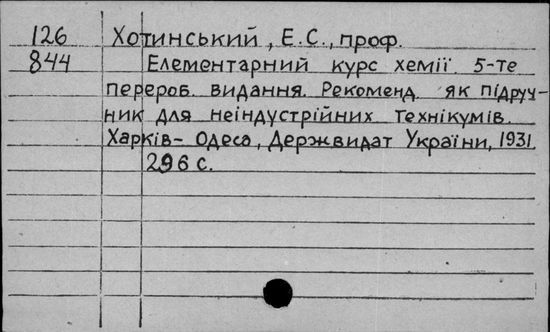 126 Хотинський, Е.С., проф.
844 Елементарний курс хемії. 5-те
перероб. видання. Рекоменд. як підруч-
ник для неіндустрійних технікумів.
Харків- Одеса, Держвидат України, 1931.
296 с.